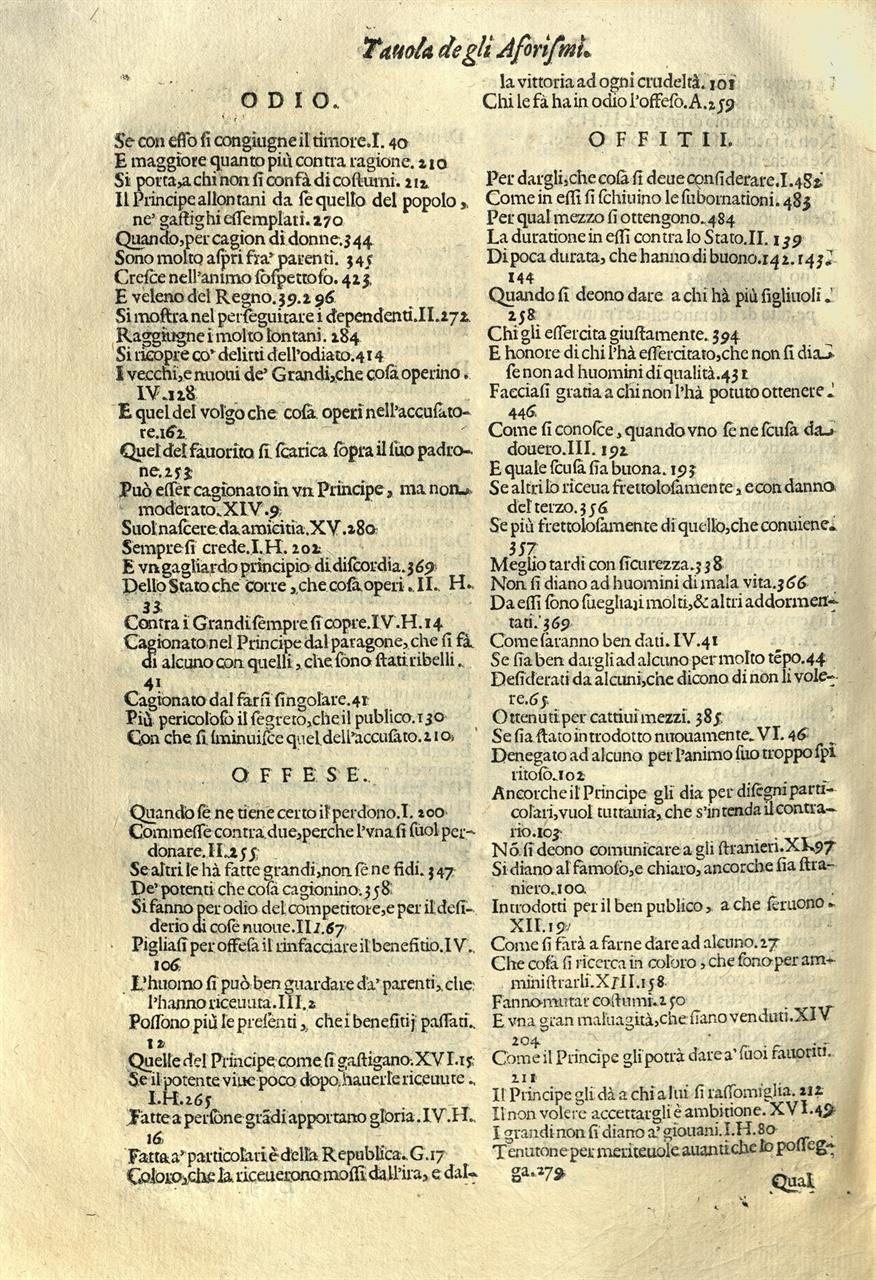 Tauola de gli Aforiſmi.
ODIO.
Se con eſſo ſi congiugne il timore.I. 40
E maggiore quanto più contra ragione. 210
Si porta,a chi non ſi confà di coſtumi. 212
Il Principe allontani da ſe quello del popolo,
ne' gaſtighi eſſemplari.270
Quando,per cagion di donne.344
Sono molto aſpri fra' parenti. 345
Creſce nell'animo ſoſpettoſo. 423
E veleno del Regno.39.296
Si moſtra nel perſeguitare i dependenti.II.272
Raggiugne i molto lontani. 284
Si ricopre co' delitti dell'odiato.414
I vecchi,e nuoui de' Grandi,che coſa operino.
IV.128
E quel del volgo che coſa operi nell'accuſato-
re.162
Quel del fauorito ſi ſcarica ſopra il ſuo padro-
ne.253
Può eſſer cagionato in vn Principe, ma non
moderato.XIV.9
Suol naſcere da amicitia.XV.280
Sempre ſi crede.I.H. 202
E vn gagliardo principio di diſcordia.369
Dello Stato che corre, che coſa operi. II. H.
33
Contra i Grandi ſempre ſi copre.IV.H.14
Cagionato nel Principe dal paragone,che ſi fà
di alcuno con quelli, che ſono ſtati ribelli.
41
Cagionato dal farſi ſingolare.41
Più pericoloſo il ſegreto,che il publico.130
Con che ſi ſminuiſce quel dell'accuſato.210
OFFESE.
Quando ſe ne tiene certo il perdono.I. 200
Commeſſe contra due,perche l'vna ſi ſuol per-
donare.II.255
Se altri le hà fatte grandi,non ſe ne fidi. 347
De' potenti che coſa cagionino.358
Si fanno per odio del competitore,e per il deſi-
derio di coſe nuoue.III.67
Pigliaſi per offeſa il rinfacciare il benefitio.IV.
106
L'huomo ſi può ben guardare da' parenti, che
l'hanno riceuuta.III.2
Poſſono più le preſenti, che i benefitij paſſati.
12
Quelle del Principe come ſi gaſtigano.XVI.15
Se il potente viue poco dopo hauerle riceuute.
I.H.265
Fatte a perſone grãdi apportano gloria.IV.H.
16
Fatta a' particolari è della Republica.G.17
Coloro,che la riceuerono moſſi dall'ira, e dal-
la vittoria ad ogni crudeltà.101
Chi le fà ha in odio l'offeſo.A.259
OFFITII.
Per dargli,che coſa ſi deue conſiderare.I.482
Come in eſſi ſi ſchiuino le ſubornationi.483
Per qual mezzo ſi ottengono.484
La duratione in eſſi contra lo Stato.II. 139
Di poca durata, che hanno di buono.142.143.
144
Quando ſi deono dare a chi hà più figliuoli.
258
Chi gli eſſercita giuſtamente. 394
E honore di chi l'hà eſſercitato,che non ſi dia
ſe non ad huomini di qualità.431
Facciaſi gratia a chi non l'hà potuto ottenere.
446
Come ſi conoſce, quando vno ſe ne ſcuſa da
douero.III. 192
E quale ſcuſa ſia buona. 193
Se altri lo riceua frettoloſamente, e con danno
del terzo.356
Se più frettoloſamente di quello,che conuiene.
357
Meglio tardi con ſicurezza.338
Non ſi diano ad huomini di mala vita.366
Da eſſi ſono ſuegliati molti,& altri addormen-
tati.369
Come ſaranno ben dati. IV.41
Se ſia ben dargli ad alcuno per molto tẽpo.44
Deſiderati da alcuni,che dicono di non li vole-
re.65
Ottenuti per cattiui mezzi. 385
Se ſia ſtato introdotto nuouamente.VI. 46
Denegato ad alcuno per l'animo ſuo troppo ſpi
ritoſo.102
Ancorche il Principe gli dia per diſegni parti-
colari,vuol tuttauia, che s'intenda il contra-
rio.103
Nõ ſi deono comunicare a gli ſtranieri.XI.97
Si diano al famoſo,e chiaro, ancorche ſia ſtra-
niero.100
Introdotti per il ben publico, a che ſeruono.
XII.19
Come ſi farà a farne dare ad alcuno.27
Che coſa ſi ricerca in coloro, che ſono per am-
miniſtrarli.XIII.158
Fanno mutar coſtumi.250
E vna gran maluagità,che ſiano venduti.XIV
204
Come il Principe gli potrà dare a' ſuoi fauoriti.
211
Il Principe gli dà a chi a lui ſi raſſomiglia. 212
Il non volere accettargli è ambitione. XVI.49
I grandi non ſi diano a' giouani.I.H.80
Tenutone per meriteuole auanti che lo poſſeg-
ga.279
Qual